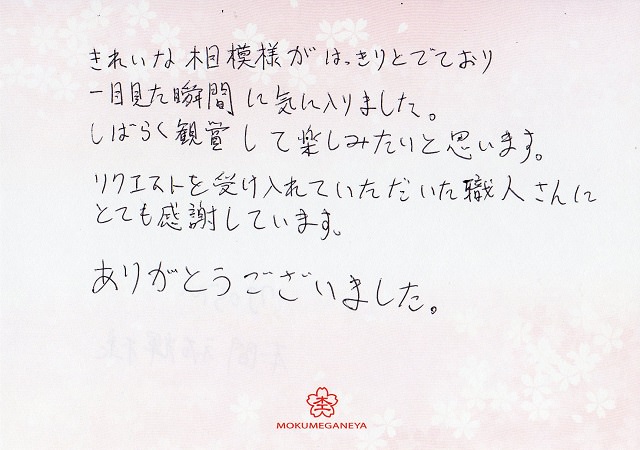 きれいな木目模様がはっきりとでており
一目見た瞬間に気に入りました。
しばらく観賞して楽しみたいと思います。
リクエストを受け入れていただいた職人さんに
とても感謝しています。
ありがとうございました。
杢
MOKUMEGANEYA